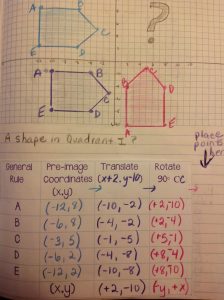 A B C D E
?
A B C D E
A B C D E
A shape in Quadrant I?
place
points
General Pre-image Translate Rotate
Rule Coordinates (x+2, y-10) 90° CC
(x,y)
A (-12,8) (-10,-2) (+2,-10)
B (-6,8) (-4,-2) (+2,-4)
C (-3,5) (-1,-5) (+5,-1)
D (-6,2) (-4,-8) (+8,-4)
E (-12,2) (-10,-8) (+8,-10)
(x,y) (+2,-10) (-y,+x)